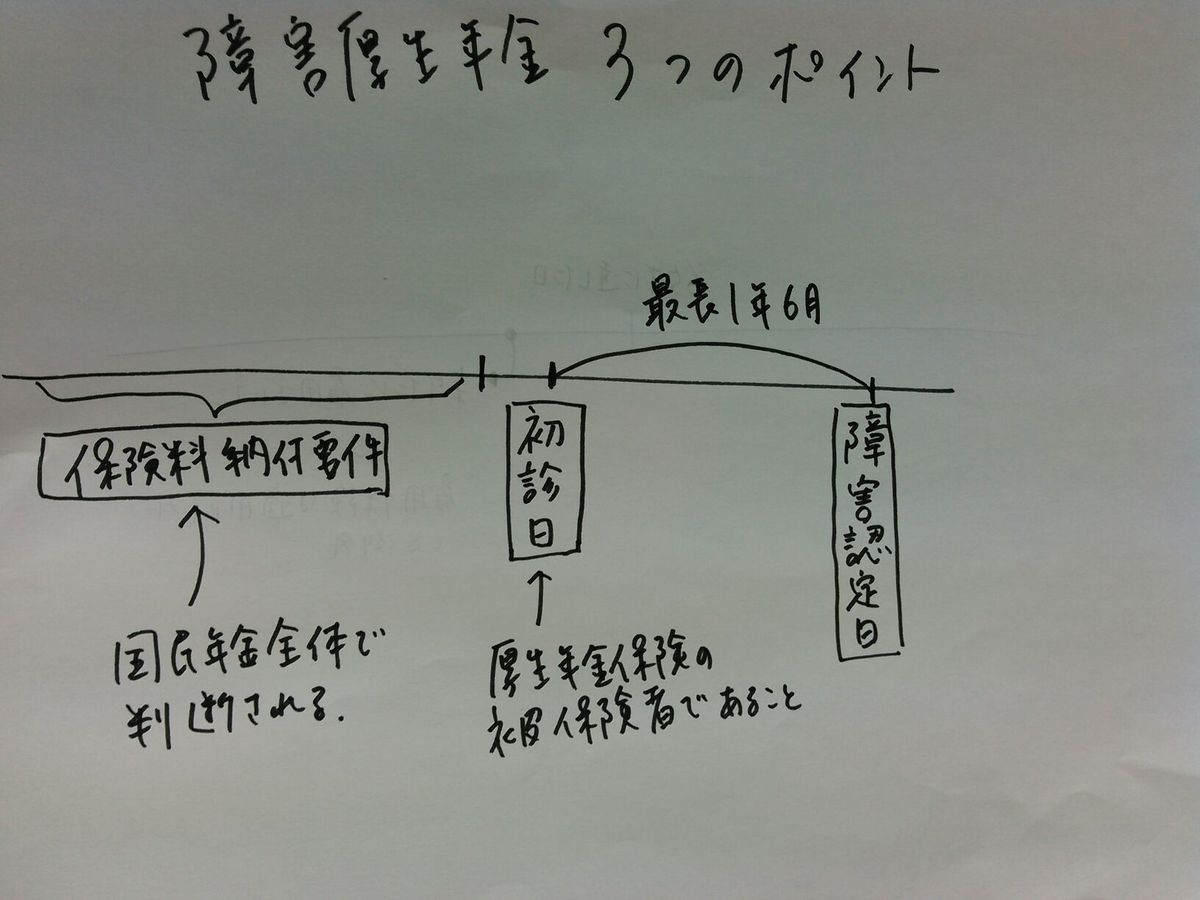 障害厚生年金 3つのポイント
最長1年6月
保険料納付要件
初診日
障害認定日
国民年金全体で
判断される.
厚生年金保険の
被保険者であること